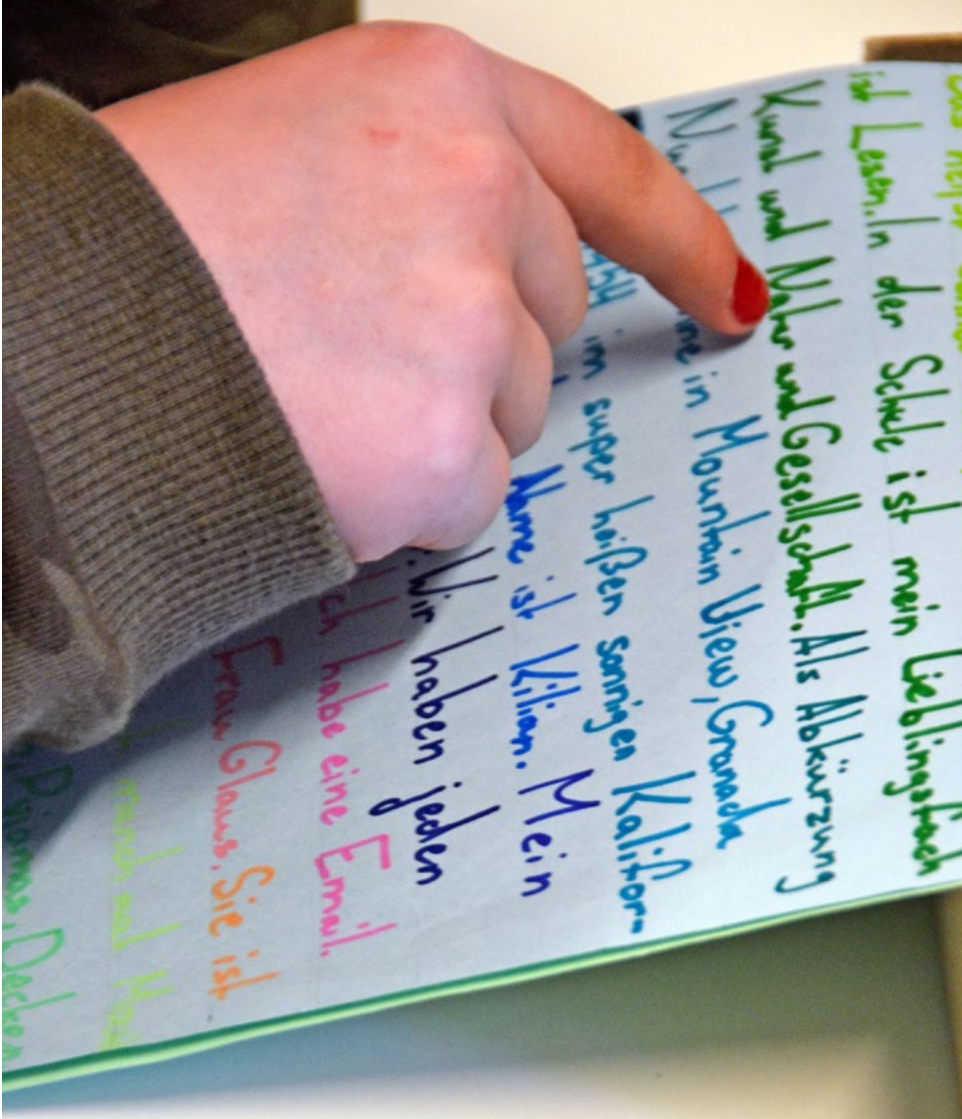 Das
ist Lesen. In der Schule ist mein Lieblingsfach
Kunst und Natur und Gesellschaft. Als Abkürzung
in Mountain View, Granada
im super heißen sonnigen Kalifor-
Name ist Kilian. Mein
Wir haben jeden
Ich habe eine Email.
Frau Glaus. Sie ist
manch mal
Decken